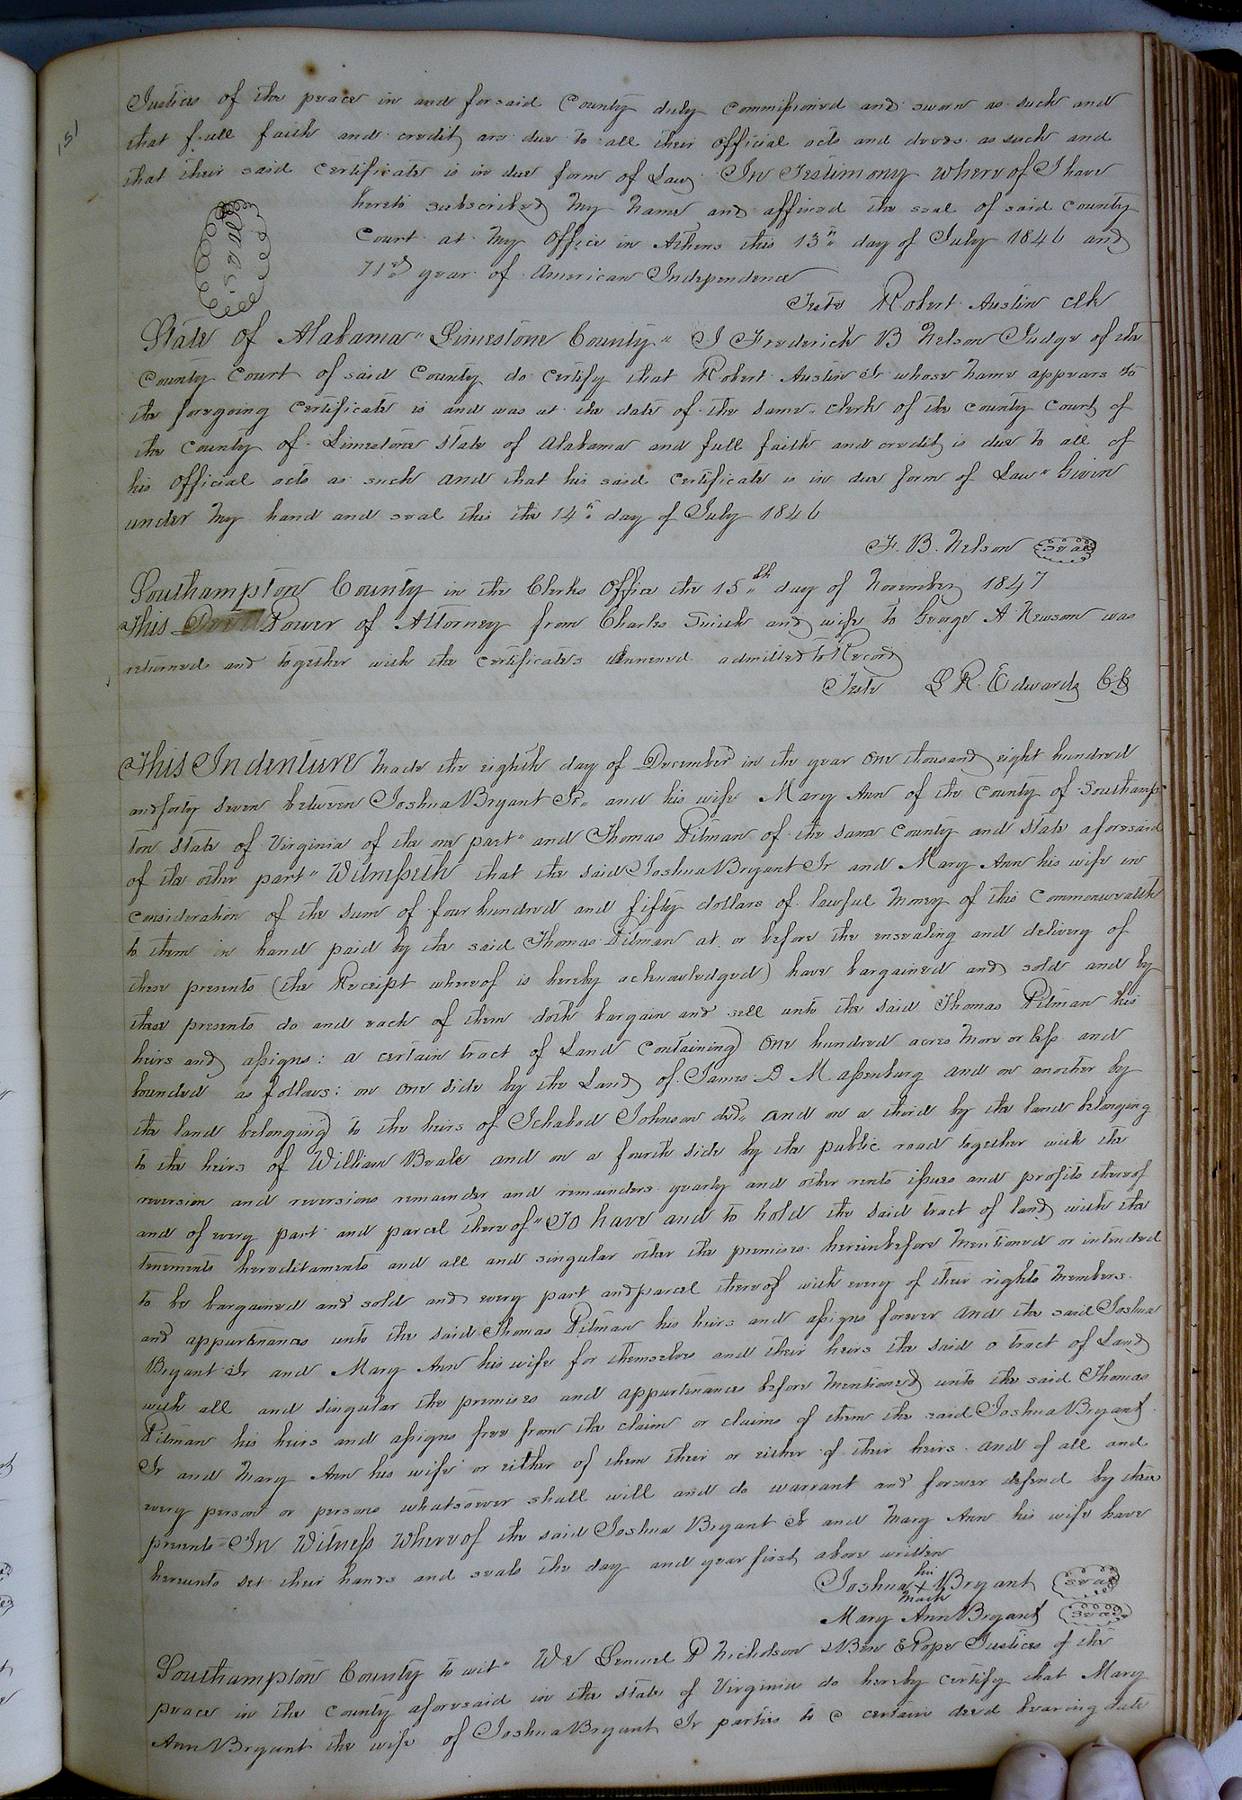 151
Justices of the peace in and for said County duly commissioned and sworn as such and
that full faith and credit are due to all their official acts and deeds as such and
that their said Certificate is in due form of Law In Testimony whereof I have
hereto subscribed my name and affixed the seal of said County
Seal
Court at my office in Athens this 13th day of July 1846 and
71st year of American Independence
Teste Robert Austin Clk
State of Alabama Limestone County I Frederick B Nelson Judge of the
County Court of said County do certify that Robert Austin Jr whose name appears to
the foregoing Certificate is and was at the date of the same clerk of the county court of
the county of Limestone State of Alabama and full faith and credit is due to all of
his official acts as such and that his said certificate is in due form of Law Given
under my hand and seal this the 14th day of July 1846
F. B. Nelson Seal
Southampton County in the Clerks Office the 15th day of November 1847
This Power of Attorney from Charles and wife to George A Newsom was
returned and together with the certificates annexed admitted to Record
Teste L R Edwards CC
This Indenture made the eighth day of December in the year one thousand eight hundred
and forty seven between Joshua Bryant Jr. and his wife Mary Ann of the County of Southamp
ton State of Virginia of the one part and Thomas Pitman of the same County and State aforesaid
of the other part Witnesseth that the said Joshua Bryant Jr and Mary Ann his wife in
consideration of the sum of four hundred and fifty dollars of lawful money of this Commonwealth
to them in hand paid by the said Thomas Pitman at or before the ensealing and delivery of
these presents (the Receipt whereof is hereby acknowledged) have bargained and sold and by
these presents do and each of them doth bargain and sell unto the said Thomas Pitman his
heirs and assigns: a certain tract of Land containing one hundred acres more or less and
bounded as follows: on one side by the Land of James D Massenburg and on another by
the land belonging to the heirs of Ichabod Johnson decd. and on a third by the land belonging
to the heirs of William Beale and on a fourth side by the public road together with the
reversion and reversions remainder and remainders yearly and other rents issues and profits thereof
and of every part and parcel thereof To have and to hold the said tract of land with the
tenements hereditaments and all and singular other the premises hereinbefore mentioned or intended
to be bargained and sold and every part and parcel thereof with every of their rights members
and appurtenances unto the said Thomas Pitman his heirs and assigns forever and the said Joshua
Bryant Jr and Mary Ann his wife for themselves and their heirs the said a tract of Land
with all and singular the premises and appurtenances before mentioned unto the said Thomas
Pitman his heirs and assigns free from the claim or claims of them the said Joshua Bryant
Jr and Mary Ann his wife or either of them their or either of their heirs and of all and
every person or persons whatsoever shall will and do warrant and forever defend by these
presents In Witness whereof the said Joshua Bryant Jr and Mary Ann his wife have
hereunto set their hands and seals the day and year first above written
his
Joshua x Bryant Seal
mark
Mary Ann Bryant Seal
Southampton County to wit We Lemuel P Nicholson & Ben E Pope Justices of the
peace in the County aforesaid in the state of Virginia do hereby certify that Mary
Ann Bryant the wife of Joshua Bryant Jr parties to a certain deed bearing date